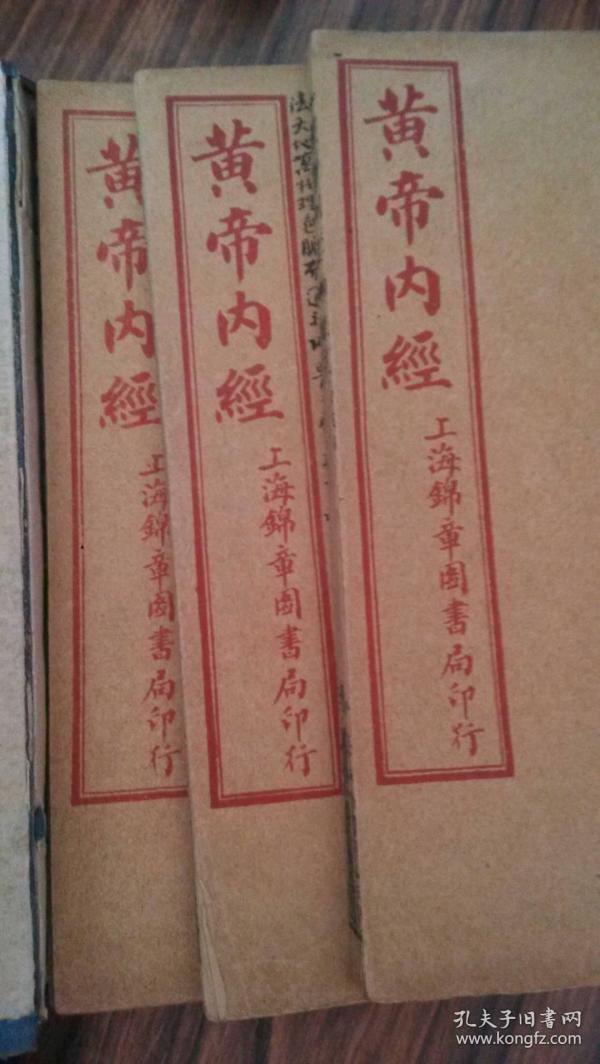 黄帝内經
上海錦章圖書局印行
黄帝内經
上海錦章圖書局印行
法天地
黄帝内經
上海錦章圖書局印行
孔夫子旧书网
kongfz.com